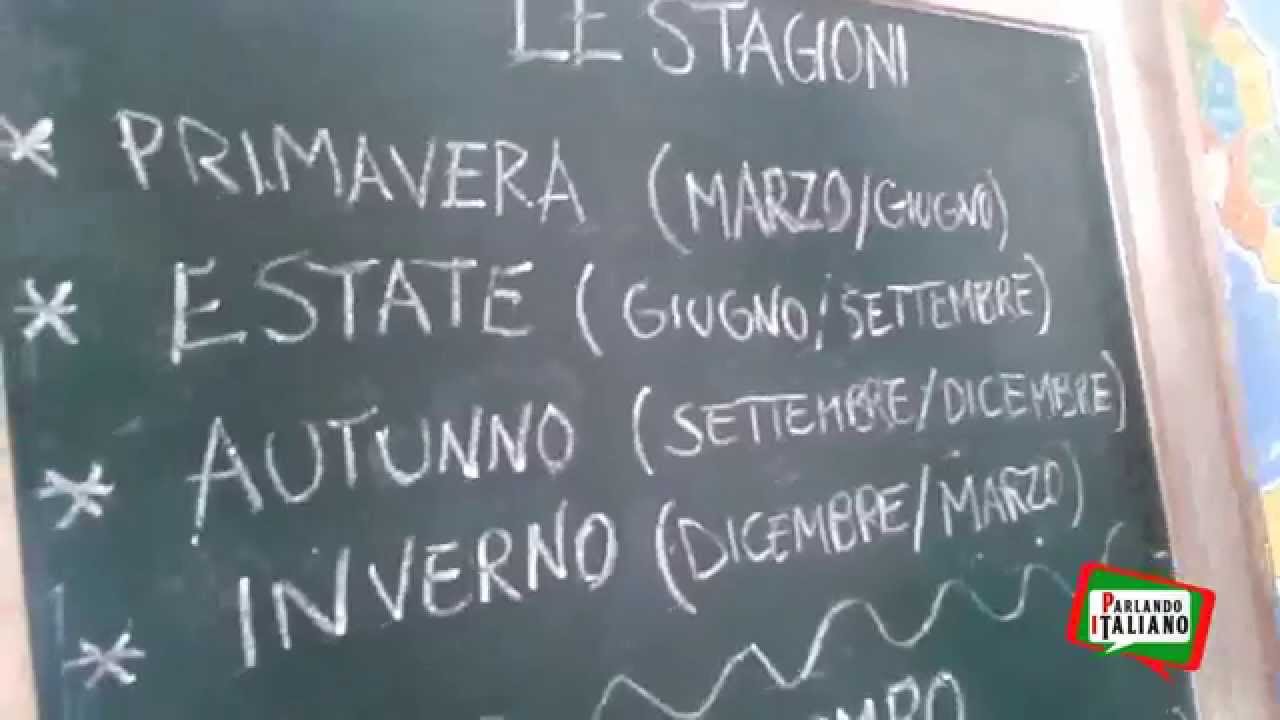 LE STAGIONI
* PRIMAVERA (MARZO/GIUGNO)
* ESTATE (GIUGNO/SETTEMBRE)
* AUTUNNO (SETTEMBRE/DICEMBRE)
* INVERNO (DICEMBRE/MARZO)
PARLANDO
ITALIANO